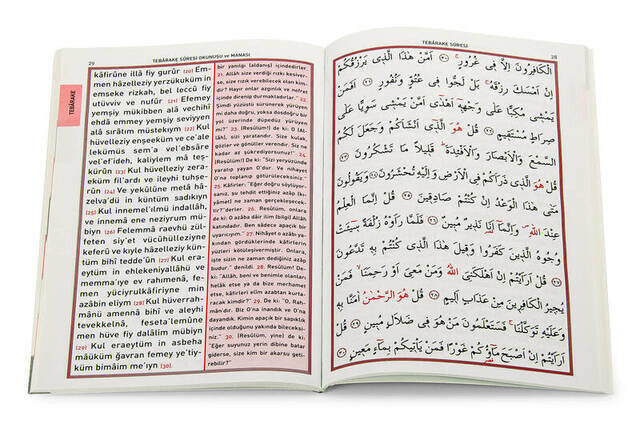 29
TEBÂRAKE SÛRESİ OKUNUŞU ve MANASI
TEBÂRAKE
kâfirûne illâ fiy gurûr (20) Em-
men hâzelleziy yerzükuküm in
emseke rizkah, bel leccû fiy
utüvviv ve nufûr (21) Efemey
yemşiy mükibben alâ vechihî
ehdâ emmey yemşiy seviyyen
alâ sırâtım müstekıym (22) Kul
hüvelleziy enşeeküm ve ce'ale
lekümüs sem'a vel'ebsâre
vel'ef'ideh, kaliylem mâ teş-
kürûn (23) Kul hüvelleziy zera-
eküm fil'ardı ve ileyhi tuhşe-
rûn (24) Ve yekûlûne metâ hâ-
zelva'dü in küntüm sadikıyn
(25) Kul innemel'ılmü indallah,
ve innemâ ene neziyrum mü-
biyn (26) Felemmâ raevhü zül-
feten siy'et vücûhülleziyne
keferû ve kıyle hâzelleziy kün-
tüm bihî tedde'ûn (27) Kul era-
eytüm in ehlekeniyallâhü ve
memma'ıye ev rahımenâ, fe-
men yüciyrulkâfiriyne min
azâbin eliym (28) Kul hüverrah-
mânü amennâ bihî ve aleyhi
tevekkelnâ, feseta'lemûne
men hüve fiy dalâlim mübiyn
(29) Kul eraeytüm in asbeha
mâüküm ğavran femey ye'tiy-
küm bimâim me'ıyn (30).
bir yanılgı (aldanış) içindedirler.
21. Allâh size verdiği rızkı kesiver-
se, size rızık verebilecek olan kim-
dir? Hayır onlar azgınlık ve nefret
içinde direnip durmaktadırlar."
22. Şimdi yüzüstü sürünerek yürüyen
mi daha doğru, yoksa dosdoğru bir
yol üzerinde düpedüz yürüyen
mi?" 23. (Resûlüm!) De ki: "O (Al-
lâh), sizi yaratandır. Size kulak,
gözler ve gönüller verendir. Siz ne
kadar az şükrediyorsunuz!" 24.
(Resûlüm!) De ki: "Sizi yeryüzünde
yaratıp yayan O'dur. Ve nihayet
O'na toplanıp götürüleceksiniz."
25. Kâfirler: "Eğer doğru söylüyor-
sanız, şu tehdit ettiğiniz azâb (kı-
yâmet) ne zaman gerçekleşecek-
tir?"derler. 26. Resûlüm, onlara
de ki: O azâba dâir ilim (bilgi) Allâh
katındadır. Ben sâdece apaçık bir
uyarıcıyım." 27. Nihâyet o azâbı ya-
kından gördüklerinde kâfirlerin
yüzleri kötüleşivermiştir. Onlara,
işte sizin ne zaman dediğiniz azâb
budur." denildi. 28. Resûlüm! De-
ki: "Allâh, beni ve benimle olanları
helâk etse ya da bize merhamet
etse, kâfirleri elim azabtan kurta-
racak kimdir?" 29. De ki: "O, Rah-
mân'dır. Biz O'na inandık ve O'na
dayandık. Kimin apaçık bir sapıklık
içinde olduğunu yakında bilecek-
siniz." 30. (Resûlüm, yine) de ki:
"Eğer suyunuz yerin dibine batar
giderse, size kim bir akarsu getire-
bilir?"
TEBÂRAKE SÛRESİ
28
الْكَافِرُونَ اِلَّا فِي غُرُورٍ ﴿٢٠﴾ اَمَّنْ هٰذَا الَّذِي يَرْزُقُكُمْ
اِنْ اَمْسَكَ رِزْقَهُ بَلْ لَجُّوا فِي عُتُوٍّ وَنُفُورٍ ﴿٢١﴾ اَفَمَنْ
يَمْشِي مُكِبًّا عَلٰى وَجْهِهِ اَهْدٰى اَمَّنْ يَمْشِي سَوِيًّا عَلٰى
صِرَاطٍ مُسْتَقِيمٍ ﴿٢٢﴾ قُلْ هُوَ الَّذِي اَنْشَاَكُمْ وَجَعَلَ لَكُمُ
السَّمْعَ وَالْاَبْصَارَ وَالْاَفْئِدَةَ قَلِيلًا مَا تَشْكُرُونَ ﴿٢٣﴾
قُلْ هُوَ الَّذِي ذَرَاَكُمْ فِي الْاَرْضِ وَاِلَيْهِ تُحْشَرُونَ ﴿٢٤﴾ وَيَقُولُونَ
مَتٰى هٰذَا الْوَعْدُ اِنْ كُنْتُمْ صَادِقِينَ ﴿٢٥﴾ قُلْ اِنَّمَا الْعِلْمُ
عِنْدَ اللّٰهِ وَاِنَّمَا اَنَا نَذِيرٌ مُبِينٌ ﴿٢٦﴾ فَلَمَّا رَاَوْهُ زُلْفَةً سِيئَتْ
وُجُوهُ الَّذِينَ كَفَرُوا وَقِيلَ هٰذَا الَّذِي كُنْتُمْ بِهِ تَدَّعُونَ
﴿٢٧﴾ قُلْ اَرَاَيْتُمْ اِنْ اَهْلَكَنِيَ اللّٰهُ وَمَنْ مَعِيَ اَوْ رَحِمَنَا فَمَنْ
يُجِيرُ الْكَافِرِينَ مِنْ عَذَابٍ اَلِيمٍ ﴿٢٨﴾ قُلْ هُوَ الرَّحْمٰنُ اٰمَنَّا بِهِ
وَعَلَيْهِ تَوَكَّلْنَا فَسَتَعْلَمُونَ مَنْ هُوَ فِي ضَلَالٍ مُبِينٍ ﴿٢٩﴾ قُلْ
اَرَاَيْتُمْ اِنْ اَصْبَحَ مَاؤُكُمْ غَوْرًا فَمَنْ يَأْتِيكُمْ بِمَاءٍ مَعِينٍ ﴿٣٠﴾